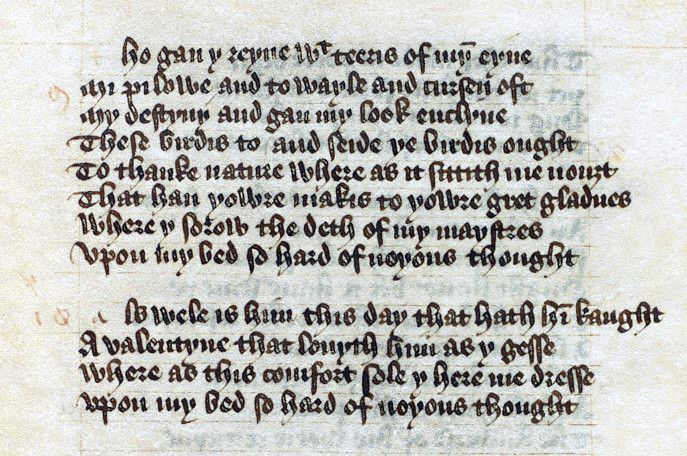 ho gan y reyne wt teeris of my eyne
mi pilowe and to wayle and cursen oft
my destyny and gan my look enclyne
These birdis to and seide ye birdis ought
To thanke nature where as it sittith me nouȝt
That han yowre makis to yowre gret gladnes
where y sorow the deth of my maystres
vpon my bed so hard of noyous thought
lo wele is him this day that hath hi kaught
A valentyne that louyth him as y gesse
where as this comfort sole y here me dresse
vpon my bed so hard of noyous thought